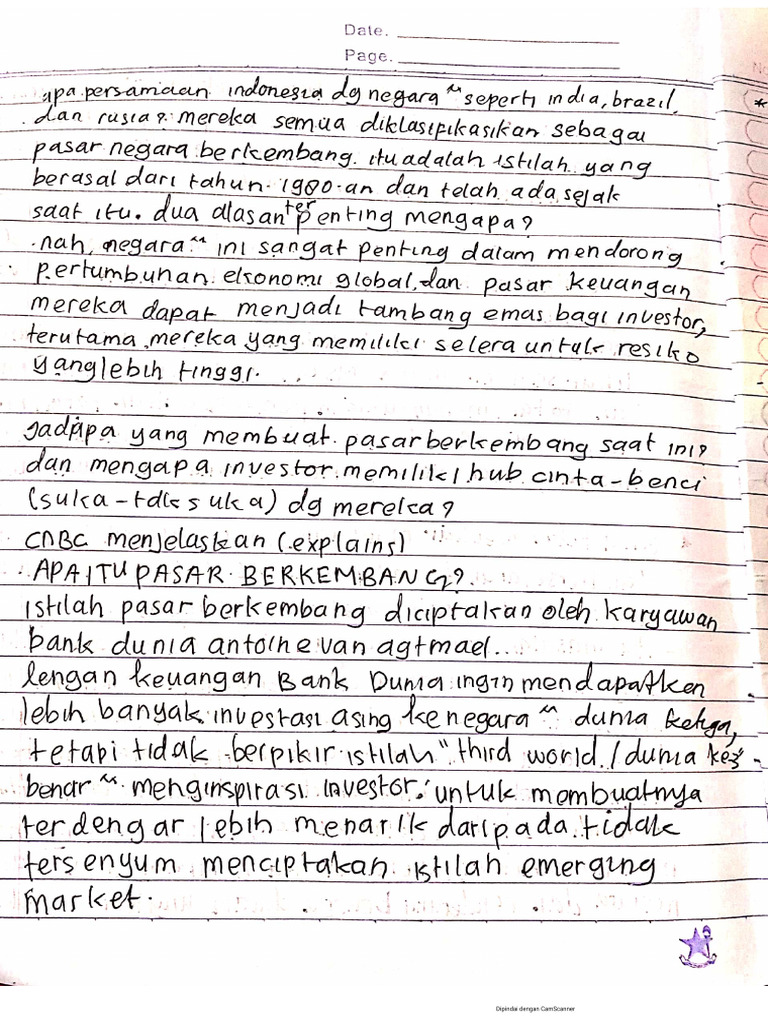 Date.
Page.
No
apa persamaan indonesia dg negara" seperti india, brazil,
dan rusia? mereka semua diklasifikasikan sebagai
pasar negara berkembang. itu adalah istilah yang
berasal dari tahun 1980-an dan telah ada sejak
saat itu. dua alasan terpenting mengapa?
nah, negara" ini sangat penting dalam mendorong
pertumbuhan ekonomi global, dan pasar keuangan
mereka dapat menjadi tambang emas bagi investor,
terutama mereka yang memiliki selera untuk resiko
yang lebih tinggi.
Jadi apa yang membuat pasar berkembang saat ini?
dan mengapa investor memiliki hub cinta-benci
(suka-tdk suka) dg mereka?
CNBC menjelaskan (explains)
APA ITU PASAR BERKEMBANG?
istilah pasar berkembang diciptakan oleh karyawan
bank dunia antoine van agtmael..
lengan keuangan Bank Dunia ingin mendapatken
lebih banyak investasi asing ke negara" dunia ketiga,
tetapi tidak berpikir istilah "third world / dunia ke3
benar" menginspirasi investor. untuk membuatnya
terdengar lebih menarik daripada tidak
tersenyum menciptakan istilah emerging
market.
Dipindai dengan CamScanner